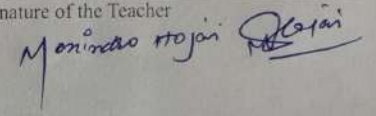 nature of the Teacher
Monindro Hojai Hojai